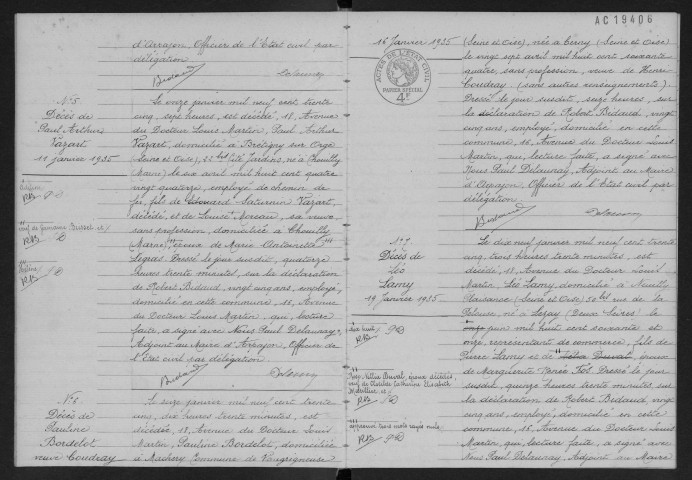 d'Arpajon, Officier de l'Etat civil par
délégation.
Bidaud Delaunay
N° 5
Décès de
Paul Arthur
Vazart
11 janvier 1935
Le onze janvier mil neuf cent trente
cinq, sept heures, est décédé, 18, Avenue
du Docteur Louis Martin, Paul Arthur
Vazart, domicilié à Bretigny sur Orge
(Seine et Oise), 22 bis Cité Jardins, né à Chouilly
(Marne) le six avril mil huit cent quatre
vingt quatorze, employé de chemin de
fer, fils de Edouard Saturnin Vazart,
décédé, et de Louise Moreau, sa veuve,
sans profession, domiciliée à Chouilly
(Marne), époux de Marie Antoinette
Legras. Dressé le jour susdit, quatorze
heures trente minutes, sur la déclaration
de Robert Bidaud, vingt cinq ans, employé,
domicilié en cette commune, 18, Avenue
du Docteur Louis Martin, qui, lecture
faite, a signé avec Nous Paul Delaunay,
Adjoint au Maire d'Arpajon, Officier de
l'Etat civil par délégation.
Bidaud Delaunay
N° 6
Décès de
Pauline
Bordelot
veuve Coudray
Le onze janvier mil neuf cent trente
cinq, dix heures trente minutes, est
décédée, 18, Avenue du Docteur Louis
Martin, Pauline Bordelot, domiciliée
à Machery Commune de Vaugrigneuse
AC 19406
16 Janvier 1935
ACTES DE L'ETAT CIVIL
PAPIER SPÉCIAL
4F
(Seine et Oise), née à Cerny (Seine et Oise)
le vingt sept avril mil huit cent soixante
quatre, sans profession, veuve de Henri
Coudray (sans autres renseignements).
Dressé le jour susdit, seize heures, sur
la déclaration de Robert Bidaud, vingt
cinq ans, employé, domicilié en cette
commune, 18, Avenue du Docteur Louis
Martin, qui, lecture faite, a signé avec
Nous Paul Delaunay, Adjoint au Maire
d'Arpajon, Officier de l'Etat civil par
délégation.
Bidaud Delaunay
N° 7
Décès de
Léo
Lamy
19 Janvier 1935
Le dix neuf janvier mil neuf cent trente
cinq, trois heures trente minutes, est
décédé, 18, Avenue du Docteur Louis
Martin, Léo Lamy, domicilié à Neuilly
Plaisance (Seine et Oise) 50 bis rue de la
né à Lezay (Deux Sèvres) le
juin mil huit cent soixante et
onze, représentant de commerce, fils de
Pierre Lamy et de époux
de Marguerite Renée Fot. Dressé le jour
susdit, quinze heures trente minutes, sur
la déclaration de Robert Bidaud, vingt
cinq ans, employé, domicilié en cette
commune, 18, Avenue du Docteur Louis
Martin, qui, lecture faite, a signé avec
Nous Paul Delaunay, Adjoint au Maire